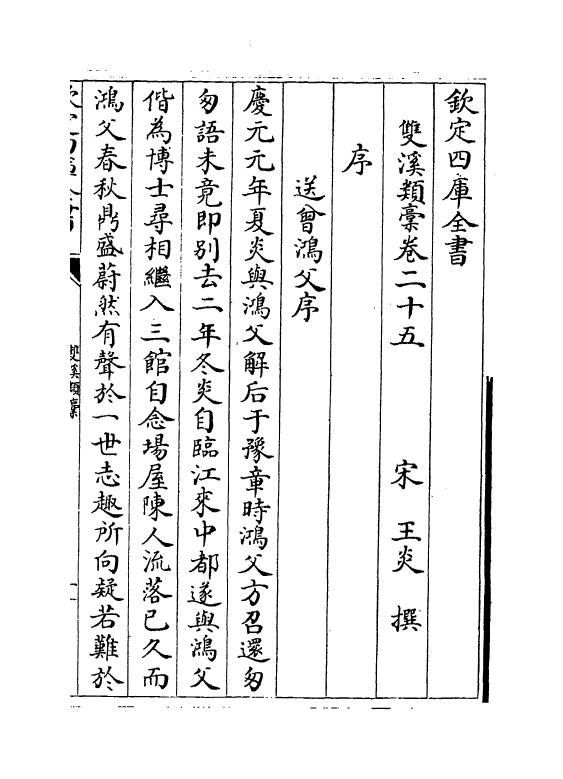 欽定四庫全書
雙溪類藁卷二十五 宋 王炎 撰
序
送曾鴻父序
慶元元年夏炎與鴻父解后于豫章時鴻父方召還匆
匆語未竟即别去二年冬炎自臨江來中都遂與鴻父
偕為博士尋相繼入三館自念場屋陳人流落已久而
鴻父春秋鼎盛蔚然有聲於一世志趣所向疑若難於
雙溪類藁
一